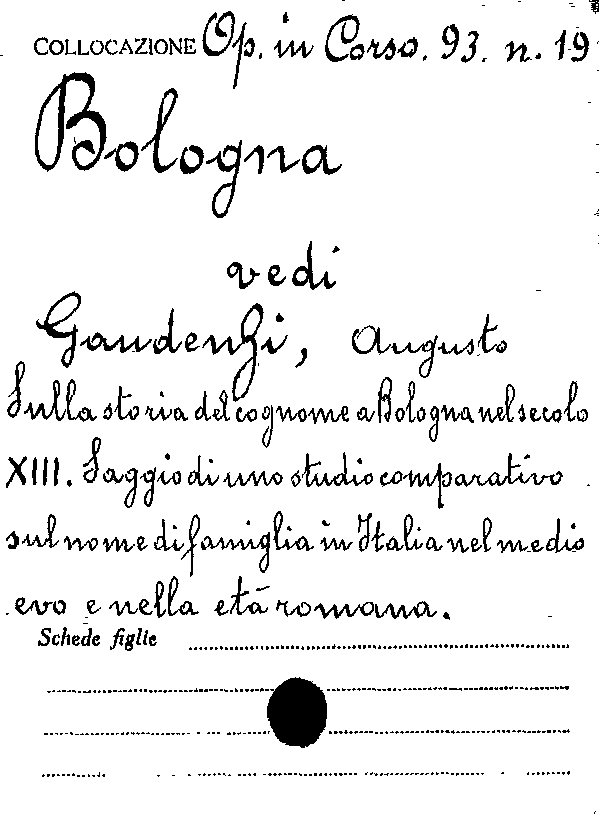 COLLOCAZIONE Op. in Corso. 93. n. 19
Bologna
vedi
Gaudenzi, Augusto
Sulla storia del cognome a Bologna nel secolo
XIII. Saggio di uno studio comparativo
sul nome di famiglia in Italia nel medio
evo e nella età romana.
Schede figlie